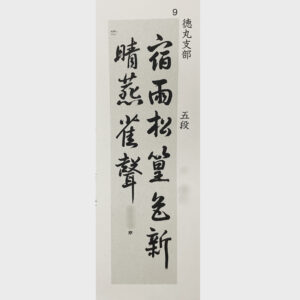 9
徳丸支部
五段
宿雨松篁色新
晴燕雀聲